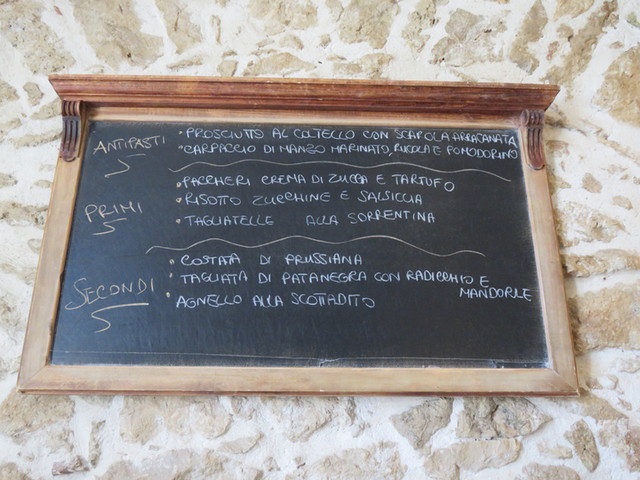 ANTIPASTI
• PROSCIUTTO AL COLTELLO CON SCAROLA ARRACANATA
• CARPACCIO DI MANZO MARINATO, RUCOLA E POMODORINO
PRIMI
• PACCHERI CREMA DI ZUCCA E TARTUFO
• RISOTTO ZUCCHINE E SALSICCIA
• TAGLIATELLE ALLA SORRENTINA
SECONDI
• COSTATA DI PRUSSIANA
• TAGLIATA DI PATANEGRA CON RADICCHIO E
MANDORLE
• AGNELLO ALLA SCOTTADITO